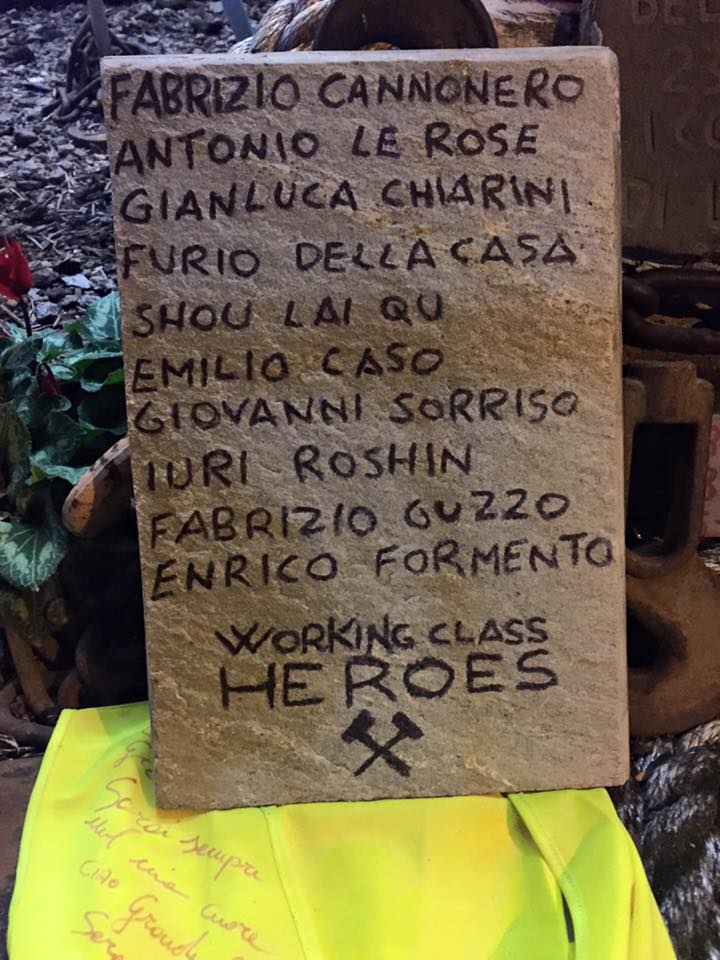 FABRIZIO CANNONERO
ANTONIO LE ROSE
GIANLUCA CHIARINI
FURIO DELLA CASA
SHOU LAI QU
EMILIO CASO
GIOVANNI SORRISO
IURI ROSHIN
FABRIZIO GUZZO
ENRICO FORMENTO
WORKING CLASS
HEROES
sempre
mio cuore
CIAO